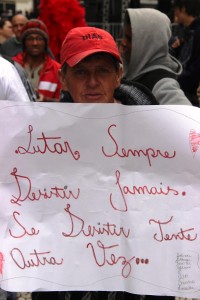 Lutar, Sempre
Desistir Jamais.
Se Desistir Tente
Outra Vez...